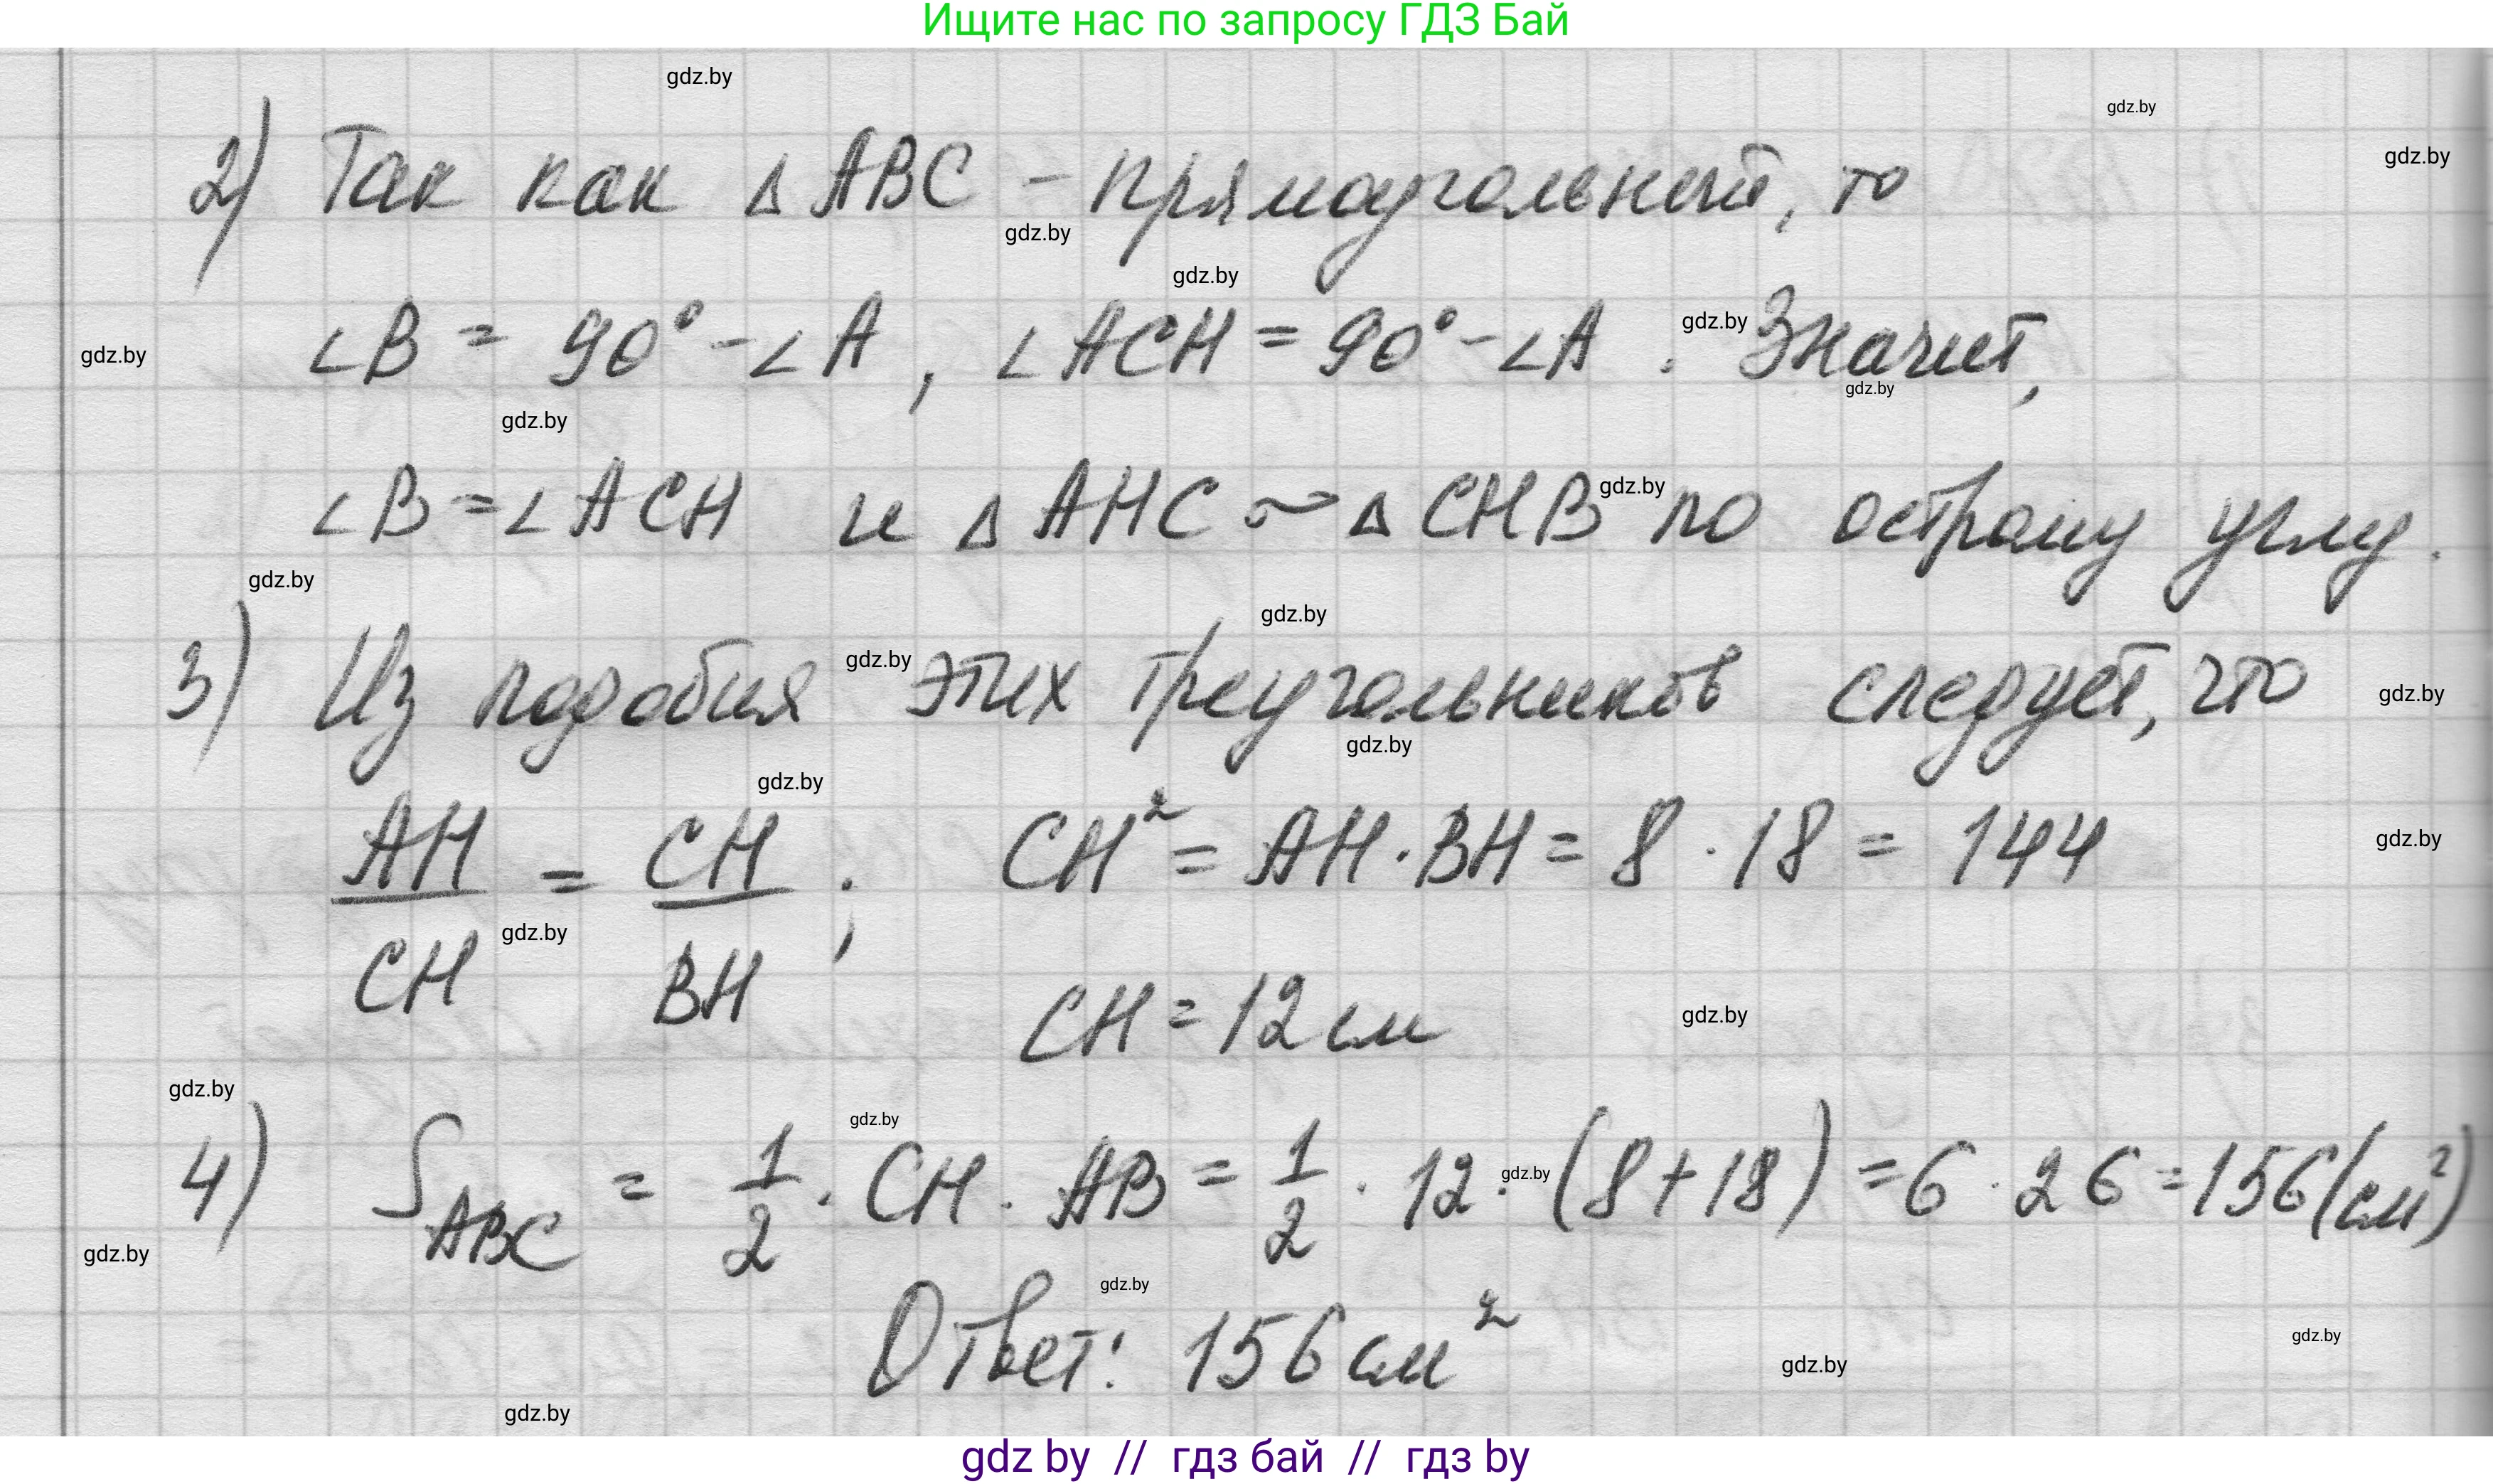 Ищите нас по запросу ГДЗ Бай
gdz.by
gdz.by
gdz.by
2) Так как ΔABC - прямоугольный, то
gdz.by
gdz.by
∠B = 90° - ∠A, ∠ACH = 90° - ∠A. Значит,
gdz.by
gdz.by
gdz.by
gdz.by
∠B = ∠ACH и ΔAHC ~ ΔCHB по острому углу.
gdz.by
gdz.by
gdz.by
3) Из подобия этих треугольников следует, что
gdz.by
gdz.by
gdz.by
gdz.by
AH/CH = CH/BH; CH² = AH · BH = 8 · 18 = 144
gdz.by
gdz.by
CH = 12 см
gdz.by
gdz.by
gdz.by
4) S ABC = 1/2 · CH · AB = 1/2 · 12 · (8 + 18) = 6 · 26 = 156 (см²)
gdz.by
gdz.by
gdz.by
Ответ: 156 см²
gdz.by
gdz.by
gdz.by
gdz by // гдз бай // гдз by